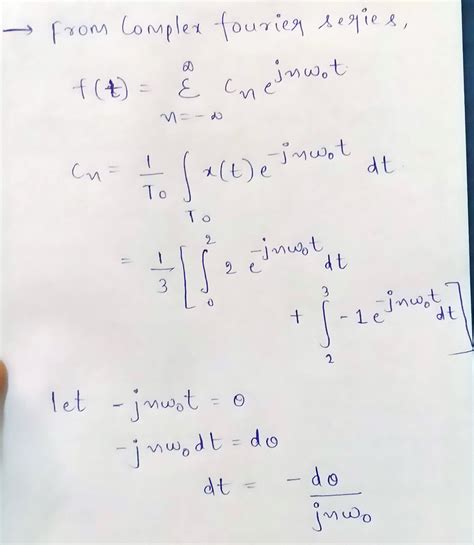 → From Complex fourier series,
f(t) = Σ_{n=-∞}^{∞} C_n e^{jnω₀t}
C_n = 1/T₀ ∫_{T₀} x(t) e^{-jnω₀t} dt
= 1/3 [ ∫_0^2 2 e^{-jnω₀t} dt
+ ∫_2^3 -1 e^{-jnω₀t} dt ]
let -jnω₀t = θ
-jnω₀ dt = dθ
dt = -dθ/jnω₀